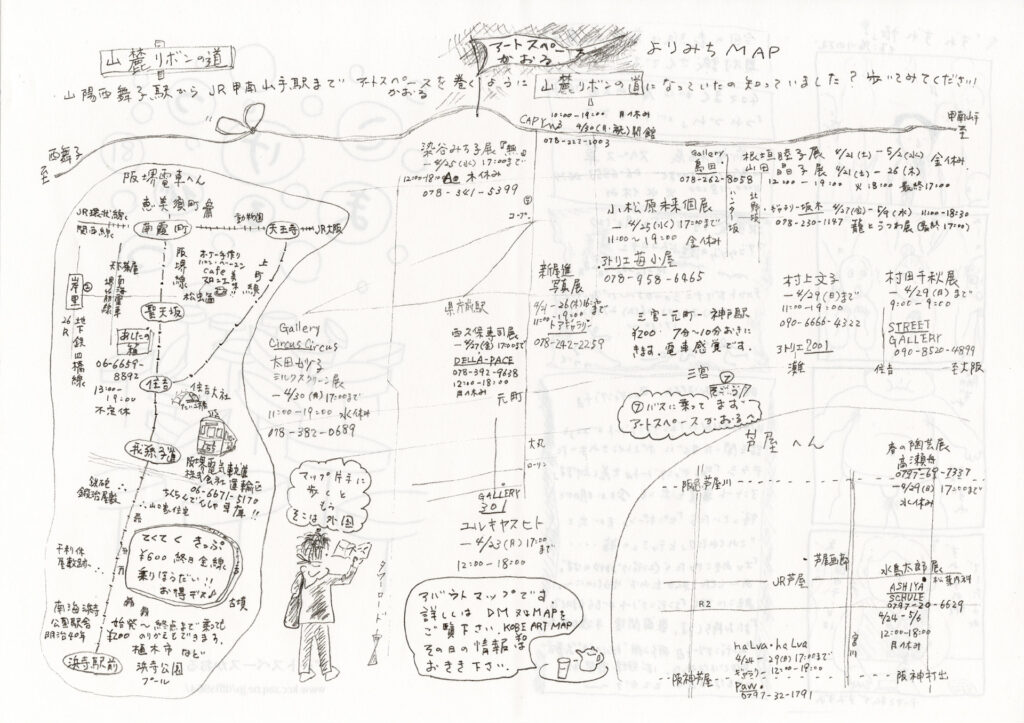 山麓リボンの道
アートスペース
かおる
よりみち MAP
山陽西舞子駅から JR甲南山手駅まで アートスペース
かおる
を巻くように 山麓リボンの道になっていたの知っていました？歩いてみてください！
西舞子
至
甲南山手
至
CAPY3
10:00-19:00 月休み
4/30(月・祝)開館
078-222-1003
染谷みち子展『無』
-4/25(水)17:00まで
12:00-18:00 木休み
078-341-5399
コープ
Gallery
島田
078-262-8058
ハンター坂
北野坂
根垣睦子展 4/21(土)-5/2(水) 金休み
山田晶子展 4/21(土)-26(木)
12:00-19:00 火18:00 最終17:00
ギャラリー坂木 4/27(金)-5/9(水) 11:00-18:30
078-230-1147 龍とうつわ展(最終17:00)
小松原緑個展
-4/25(水)まで
11:00〜19:00 金休み
アトリエ苺小屋
078-958-6465
新屋進
写真展
11:00-19:00
078-242-2259
三宮-元町-神戸駅
¥200- 7分〜10分おきに
きます。電車感覚です。
村上文子
-4/29(日)まで
11:00-19:00
090-6666-4322
アトリエ2001
灘
村田千秋展
-4/29(日)まで
9:00-9:00
STREET
GALLERY
090-8520-4899
住吉
至大阪
阪堺電車へん
恵美須町
JR環状線
関西線
南霞町
動物園
天王寺
JR大阪
岸里
地下鉄四橋線
26R
天下茶屋
南海
阪堺線
上町線
cafe
松虫
聖天坂
あしたの
箱
06-6659-
8892
13:00-
19:00
不定休
住吉
住吉大社
我孫子道
阪堺電気軌道
株式会社
06-6671-5170
ちくちんでんしゃ車庫!!
鉄砲
鍛冶屋敷
山口家住宅
てくてくきっぷ
¥600 終日全線
乗りほうだい!!
お得デス♪
千利休
屋敷跡
古墳
南海浜寺
公園駅舎
明治40年
始発〜終点まで乗っても
¥200 のりかえもできまる。
植木市 など
浜寺公園
プール
浜寺駅前
Gallery
Circus Circus
太田かり子
ミルクスクリーン展
-4/30(月)17:00まで
11:00-19:00 水休み
078-382-0689
県庁前駅
-4/27(金)17:00まで
DELLA-PACE
078-392-9638
12:00-18:00
月休み
元町
三宮
⑦ バスに乗って まず
アートスペースかおるへ
大丸
ローソン
GALLERY
301
ユルキヤスヒト
-4/23(月)17:00まで
12:00-18:00
マップ片手に
歩くと
もう
そこは外国
タワーロード
アバウトマップです。
詳しくは DM又はMAPを
ご覧下さい。KOBE ART MAP
その日の情報は
おきき下さい。
芦屋へん
阪急芦屋川
春の陶芸展
高瀬舟
0797-69-7337
-4/29(日)17:00まで
水休み
芦屋画廊
JR芦屋
水島太郎展
松葉内科
ASHIYA
SCHULE
0797-20-6629
4/24-5/6
12:00-18:00
月休み
R2
宮川
haLva・haLva
4/24-29(日)17:00まで
ギャラリー 12:00-19:00
Paw
0797-32-1791
阪神芦屋
阪神打出